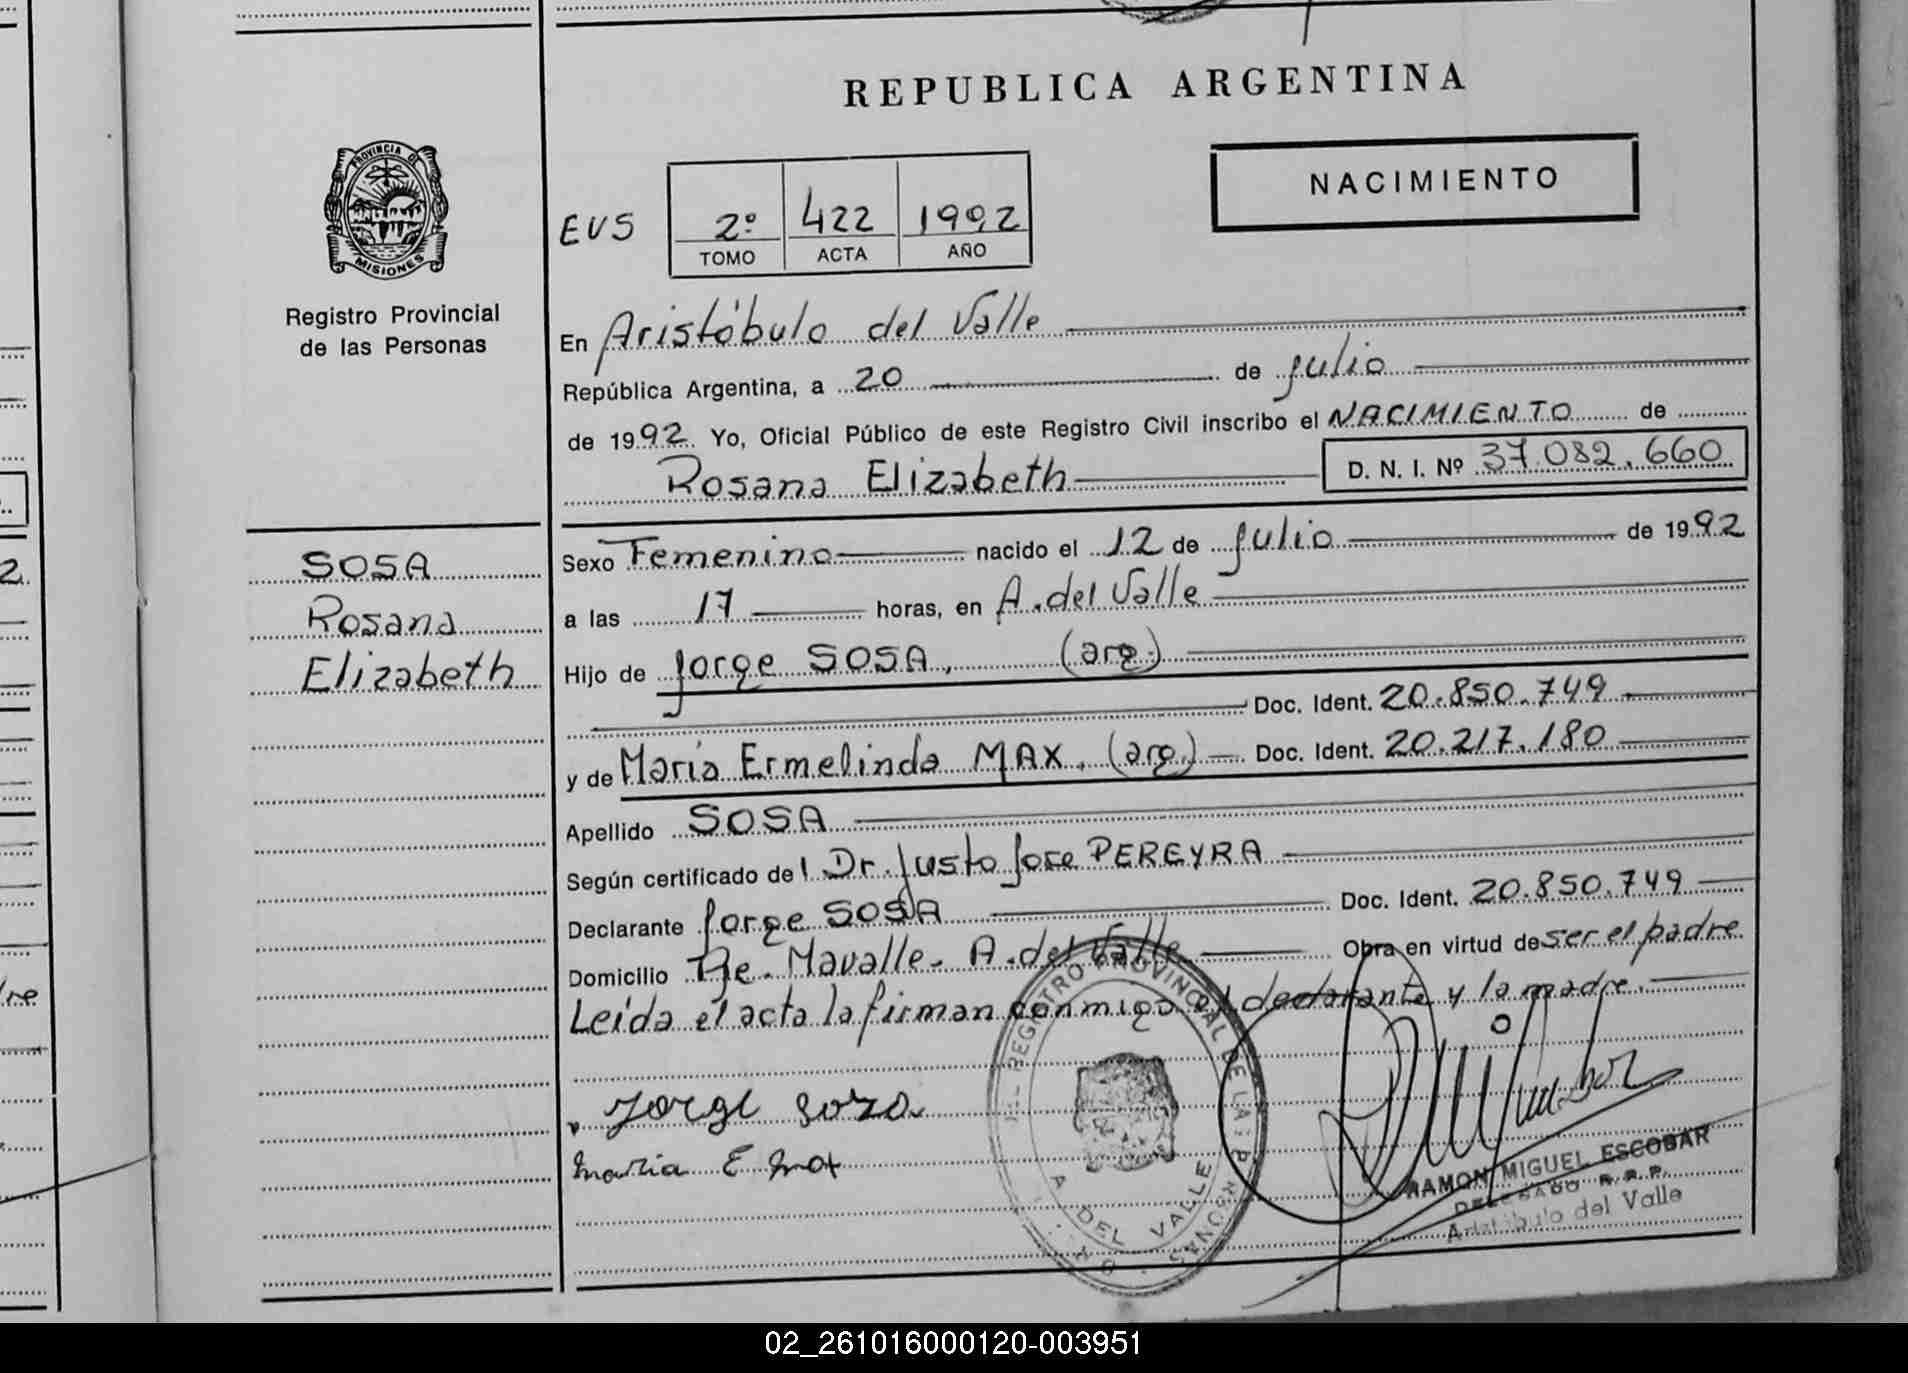 REPUBLICA ARGENTINA
PROVINCIA DE
MISIONES
Registro Provincial
de las Personas
NACIMIENTO
EVS
2º 422 1992
TOMO ACTA AÑO
En Aristóbulo del Valle
República Argentina, a 20 de julio
de 1992 Yo, Oficial Público de este Registro Civil inscribo el NACIMIENTO de
Rosana Elizabeth D. N. I. Nº 37.082.660
SOSA
Rosana
Elizabeth
Sexo Femenino nacido el 12 de julio de 1992
a las 17 horas, en A. del Valle
Hijo de Jorge SOSA, (arg.)
Doc. Ident. 20.850.749
y de Maria Ermelinda MAX, (arg.) Doc. Ident. 20.217.180
Apellido SOSA
Según certificado del Dr. Justo Jose PEREYRA
Declarante Jorge SOSA Doc. Ident. 20.850.749
Domicilio Pje. Mavalle- A. del Valle Obra en virtud de ser el padre
Leída el acta la firman conmigo el declarante y la madre.
Jorge Soza
Maria E Max
REGISTRO PROVINCIAL DE LAS PERSONAS
A DEL VALLE
RAMON MIGUEL ESCOBAR
DELEGADO R.P.P.
Aristóbulo del Valle
2.
02_261016000120-003951